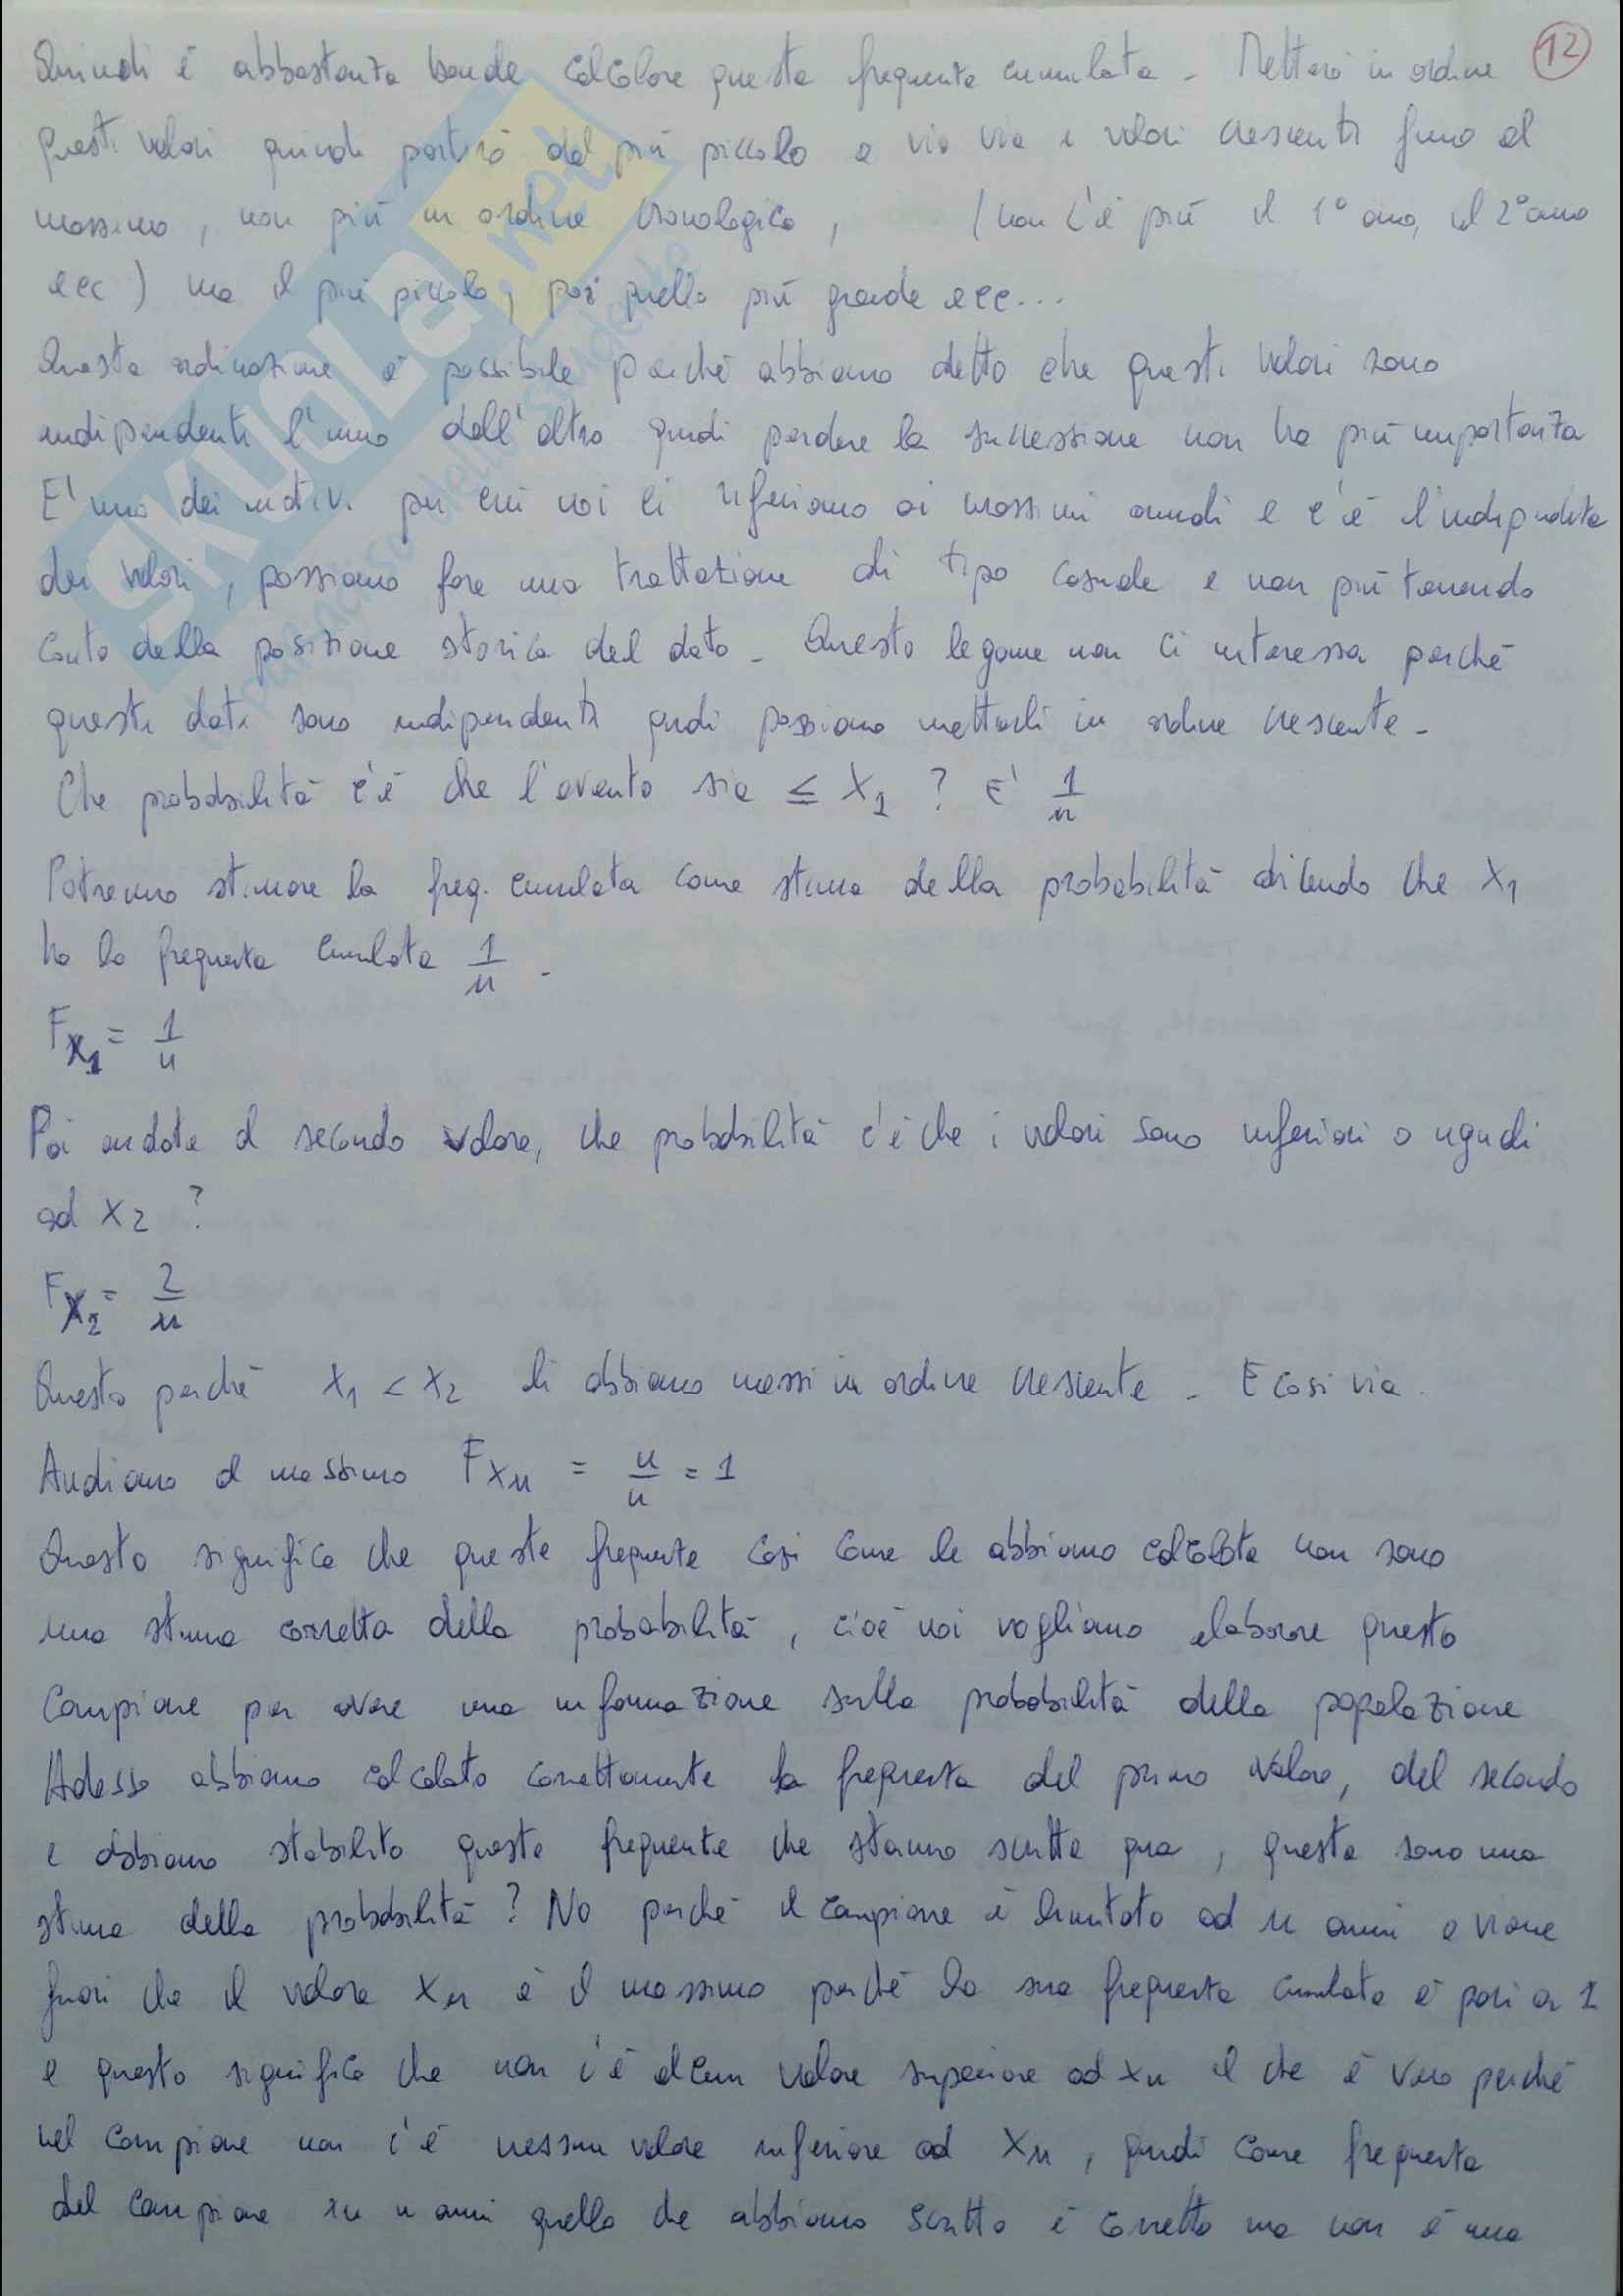 Quindi è abbastanza banale calcolare questa frequenza cumulata - Metterò in ordine 12
Questi valori quindi partirò dal più piccolo e via via i valori crescenti fino al
massimo, non più in ordine cronologico, (non c'è più il 1° anno, il 2° anno
ecc) ma il più piccolo, poi quello più grande ecc...
Questa ordinazione è possibile perché abbiamo detto che questi valori sono
indipendenti l'uno dell'altro quindi perdere la successione non ha più importanza
E' uno dei motivi per cui noi ci riferiamo ai massimi annuali e c'è l'indipendenza
dei valori, possiamo fare una trattazione di tipo casuale e non più tenendo
conto della posizione storica del dato - Questo legame non ci interessa perché
questi dati sono indipendenti quindi possiamo metterli in ordine crescente -
Che probabilità c'è che l'evento sia ≤ X1 ? E' 1/n
Potremmo stimare la freq. cumulata come stima della probabilità dicendo che X1
ha la frequenza cumulata 1/n -
FX1 = 1/n
Poi andate al secondo valore, che probabilità c'è che i valori sono inferiori o uguali
ad X2 ?
FX2 = 2/n
Questo perché X1 < X2 li abbiamo messi in ordine crescente - E così via.
Andiamo al massimo FXn = n/n = 1
Questo significa che queste frequenze così come le abbiamo calcolate non sono
una stima corretta della probabilità, cioè noi vogliamo elaborare questo
campione per avere una informazione sulla probabilità della popolazione
Adesso abbiamo calcolato correttamente la frequenza del primo valore, del secondo
e abbiamo stabilito queste frequenze che stanno scritte qua, queste sono una
stima della probabilità? No perché il campione è limitato ad n anni e viene
fuori che il valore Xn è il massimo perché la sua frequenza cumulata è pari a 1
e questo significa che non c'è alcun valore superiore ad Xn il che è vero perché
nel campione non c'è nessun valore inferiore ad Xn, quindi come frequenza
del campione su n anni quello che abbiamo scritto è corretto ma non è una
SKUOLA.net